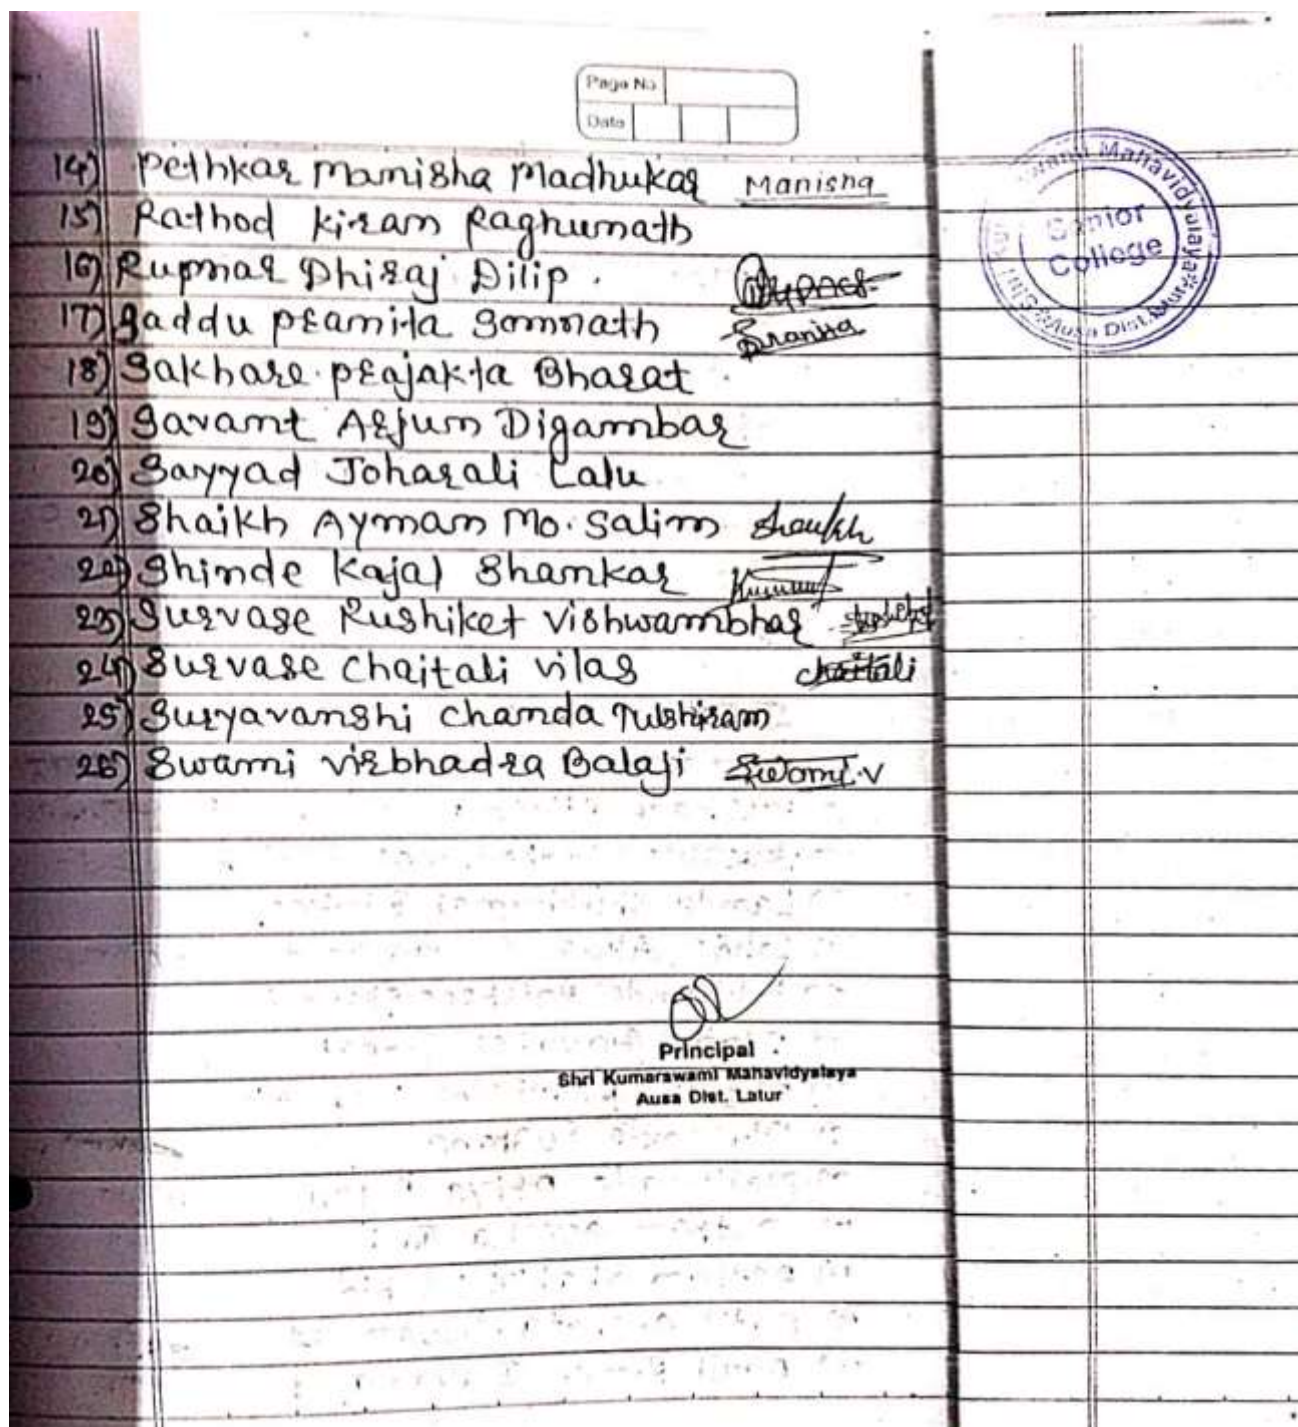 Page No
Date
14) Pethkar Manisha Madhukar Manisha
15) Rathod Kiran Raghunath
16) Rupnar Dhiraj Dilip. Rupnar
17) Saddu Pranita Somnath Pranita
18) Sakhare Prajakta Bharat
19) Savant Arjun Digambar
20) Sayyad Joharali Lalu
21) Shaikh Ayman Mo. Salim Shaikh
22) Shinde Kajal Shankar
23) Survase Rushiket Vishwambhar
24) Survase Chaitali Vilas Chaitali
25) Suryavanshi Chanda Tulshiram
26) Swami Virbhadra Balaji Swami.V
Swami Mahavidyalaya Ausa Dist.
Senior
College
Principal
Shri Kumarswami Mahavidyalaya
Ausa Dist. Latur